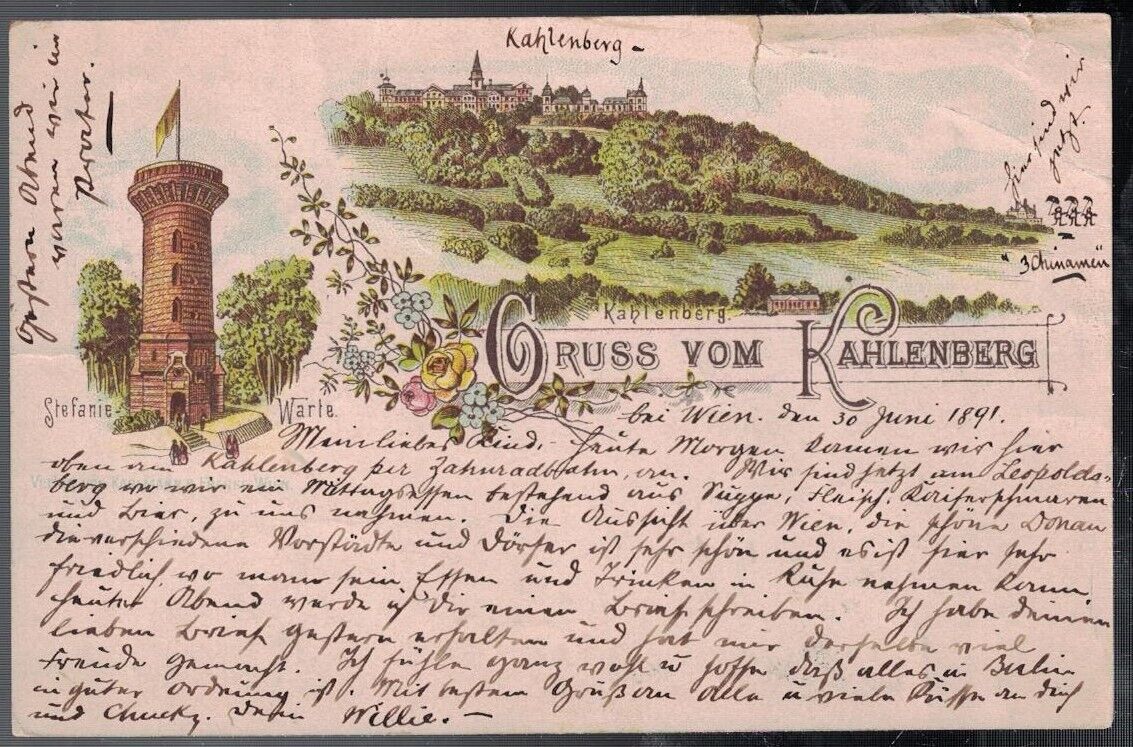 Kahlenberg -
Gestern Abend
waren wir im
Prater.
Hier sind wir
jetzt.
"3 Chinamen"
Kahlenberg.
GRUSS VOM KAHLENBERG
Stefanie-Warte.
bei Wien. den 30 Juni 1891.
Mein liebes Kind. - Heute Morgen kamen wir hier
oben am Kahlenberg per Zahnradbahn, an. Wir sind jetzt am Leopolds-
berg wo wir ein Mittagsessen bestehend aus Suppe, Fleisch, Kaiserschmarren
und Bier, zu uns nahmen. Die Aussicht über Wien, die schöne Donau
die verschiedene Vorstädte und Dörfer ist sehr schön und es ist hier sehr
friedlich, wo man sein Essen und Trinken in Ruhe nehmen kann.
Heute Abend werde ich Dir einen Brief schreiben. Ich habe deinen
lieben Brief gestern erhalten und hat mir derselbe viel
Freude gemacht. Ich fühle ganz wohl u hoffe daß alles in Berlin
in guter Ordnung ist. Mit bestem Gruß an alle u viele Küsse an dich
und Chucky. Dein Willie. -